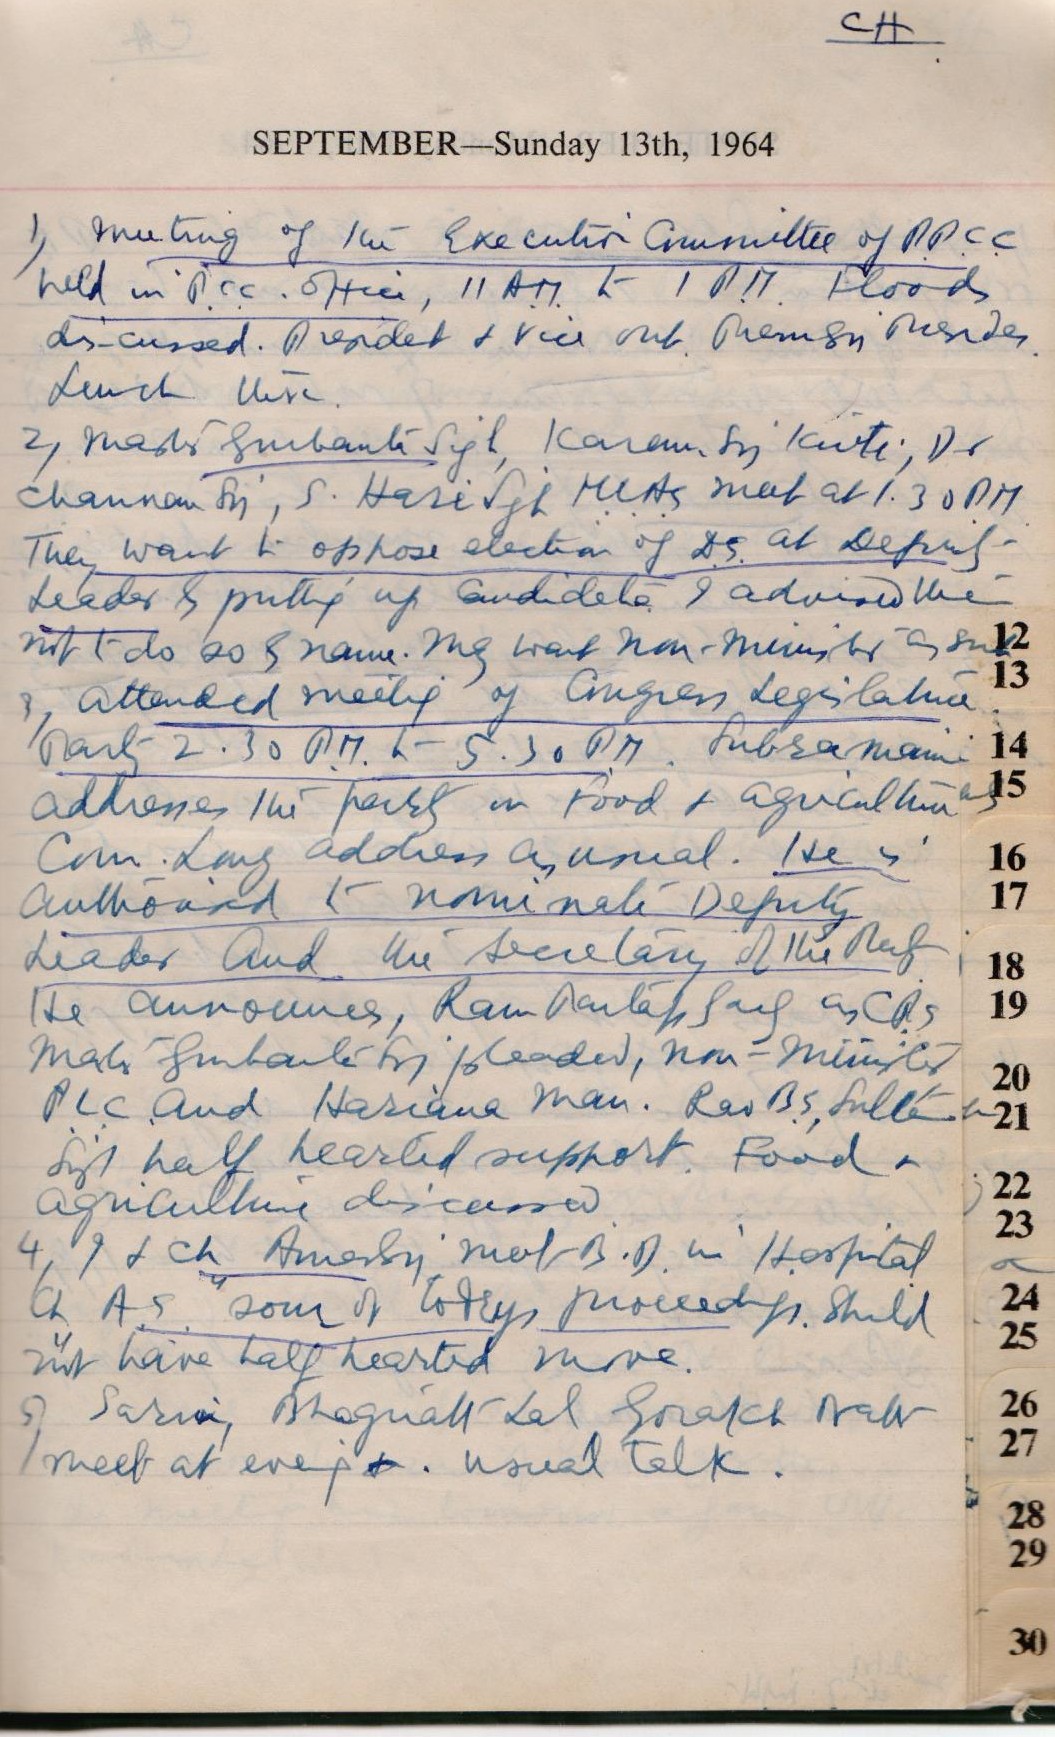 CH
SEPTEMBER—Sunday 13th, 1964
1, Meeting of the Executive Committee of P.P.C.C
held in P.C.C. office, 11 A.M. to 1 P.M. Floods
discussed. President & Vice out. Prem Sgj Presides.
Lunch there.
2, Master Gurbanta Sigh, Karam Sgj Kirti, Dr
Channan Sgj, S. Hari Sgh M.L.As meet at 1.30 PM
They want to oppose election of D.S. at Deputy
Leader & putting up candidate. I advised them
not to do so & name. May want Non-Minister as such
3, Attended meeting of Congress Legislature
Party 2.30 P.M. to 5.30 P.M. Subramaniam
addresses the party on Food & agricultural
Com. Long address as usual. He is
authorised to nominate Deputy
Leader and the Secretary of the Party
He announces, Ram Partap Garg as CPS
Master Gurbanta Sgj pleaded, non-Minister
P.L.C. and Hariana man. Rao B.S, Sultan
Sigh half hearted support. Food &
agriculture discussed
4, I & Ch Amar Sgj meet B.D. in Hospital
Ch A.S. "sour of today's proceedings. Should
not have half hearted move.
5, Sarvi, Bhagwatt Lal Gorakh Nath
meet at evening. usual talk.
12
13
14
15
16
17
18
19
20
21
22
23
24
25
26
27
28
29
30